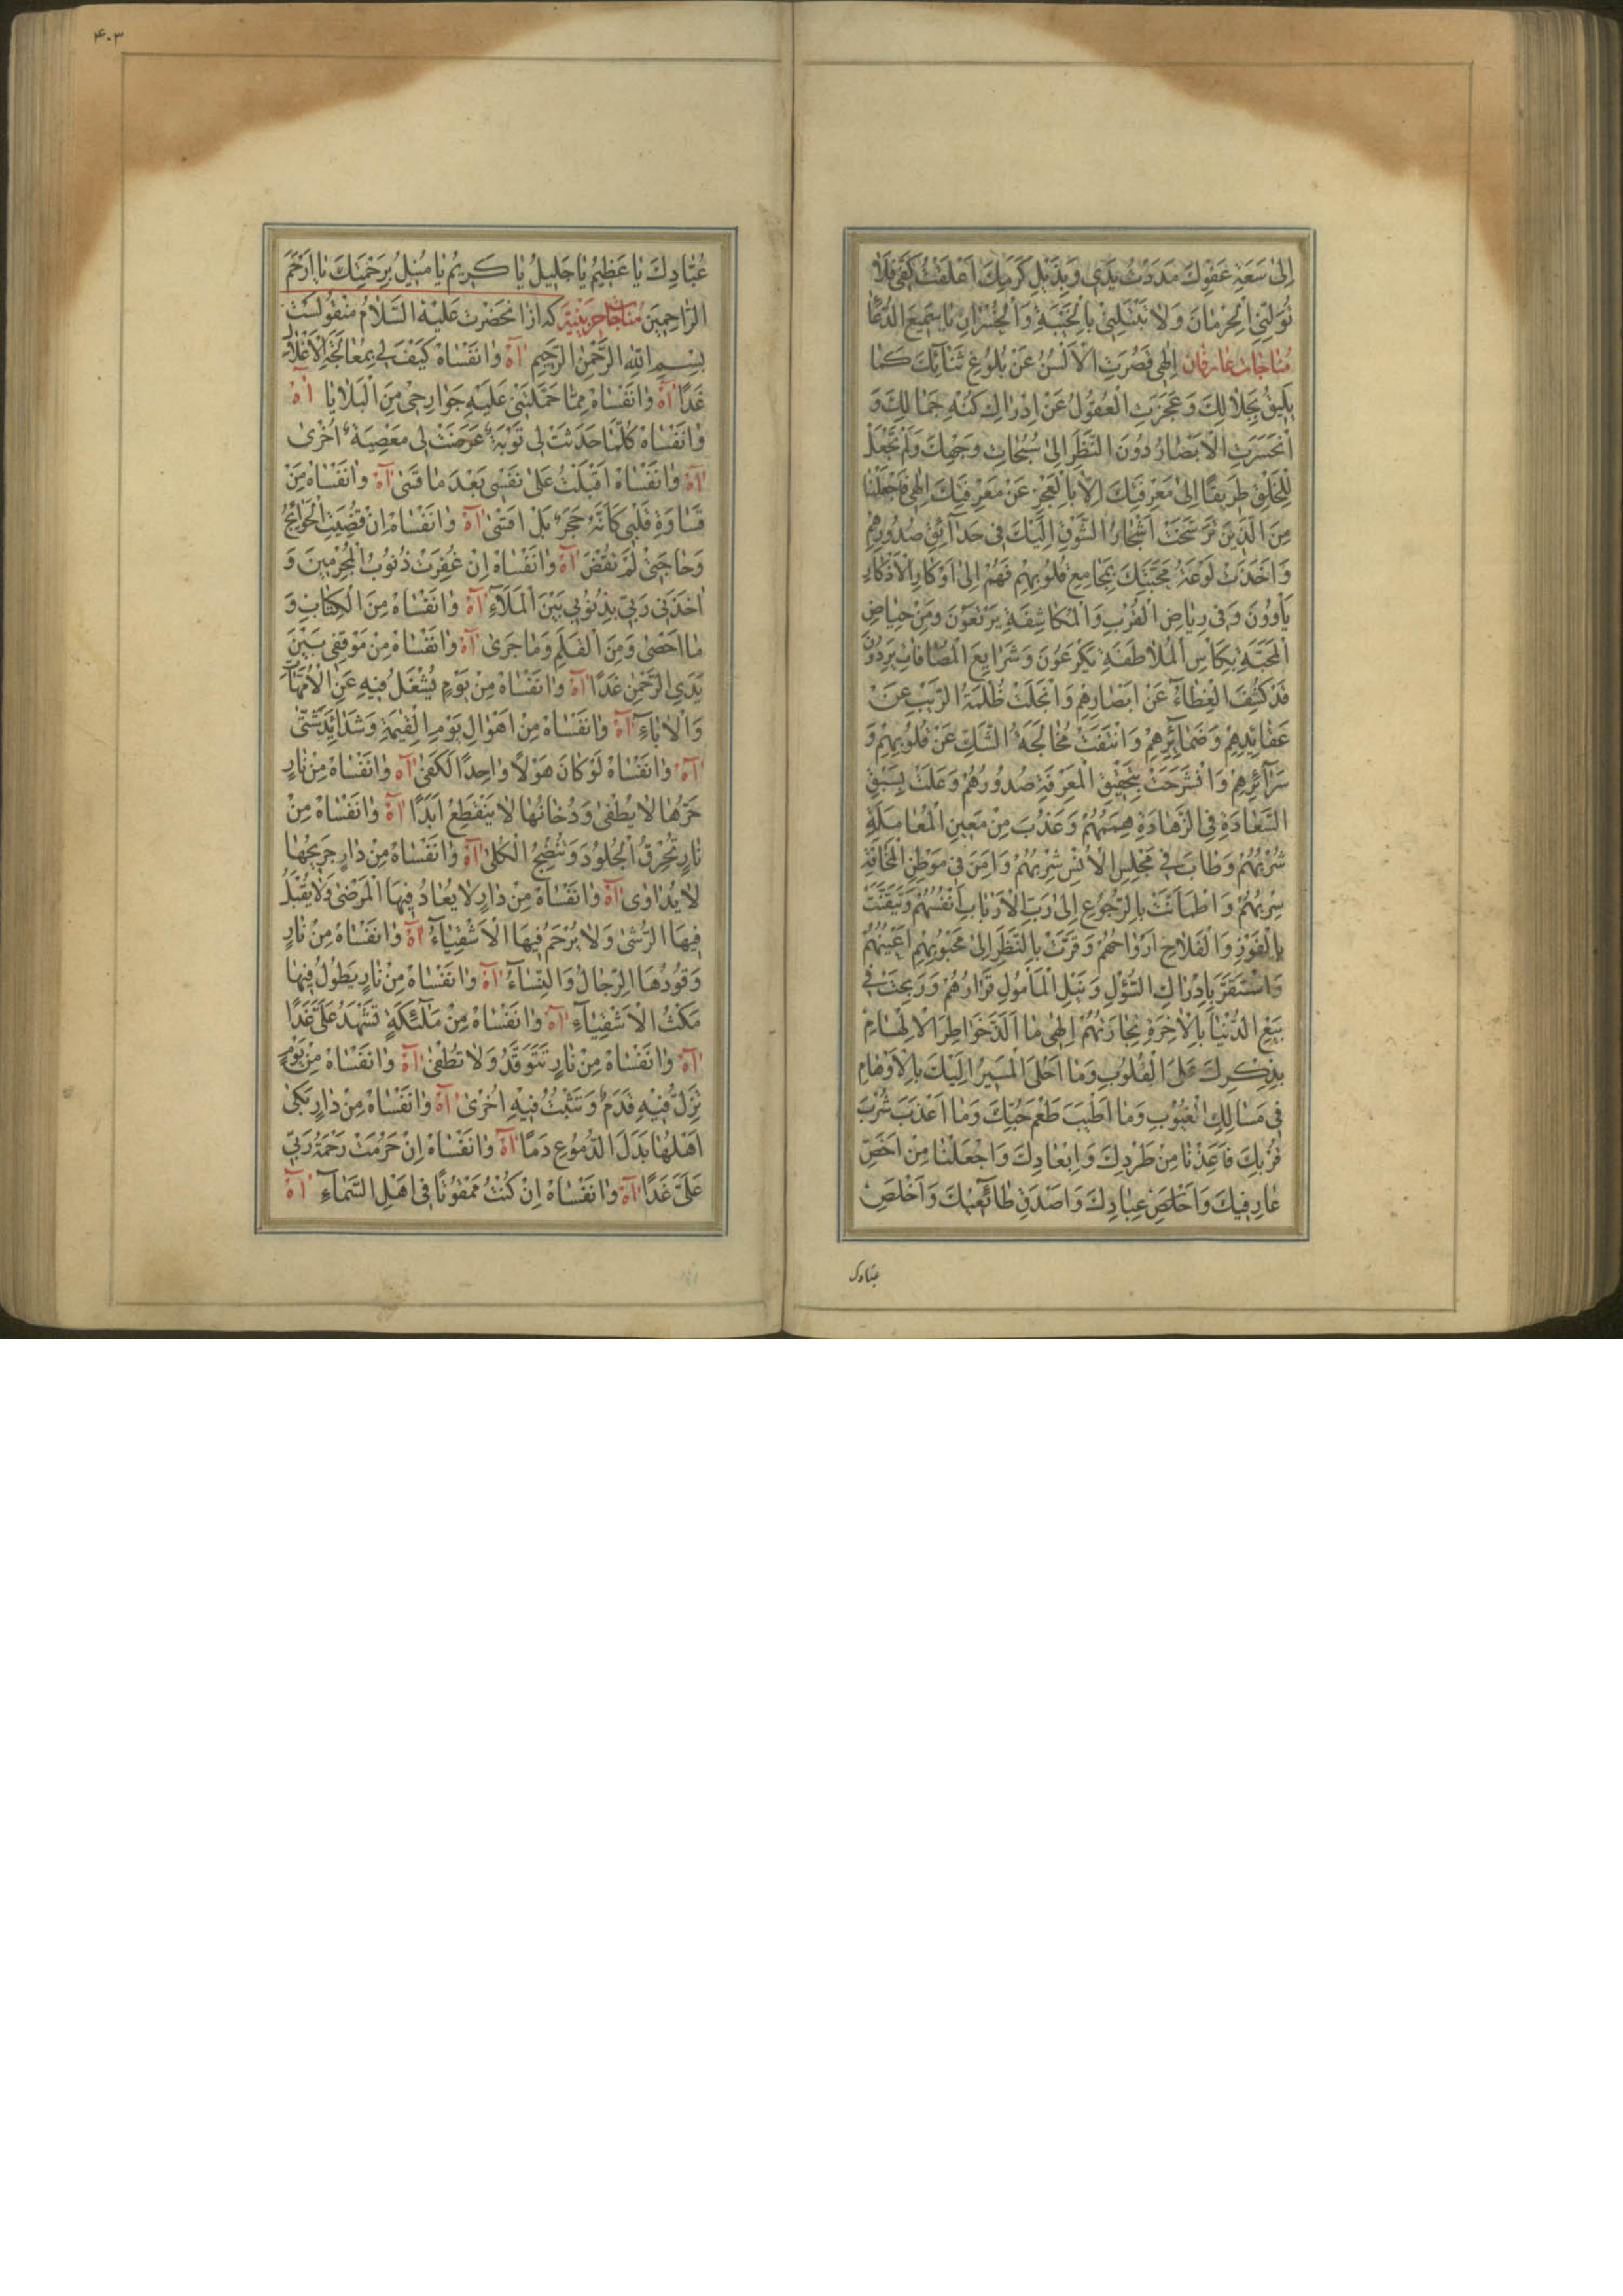 إِلىٰ سَعَةِ عَفْوِكَ مَدَدْتُ يَدَي وَبِذَيْلِ كَرَمِكَ اَعْلَقْتُ كَفّي فَلاٰ
تُوَلِّنِي الْحِرْمٰانَ وَلاٰ تَبْتَلِنِي بِالْخَيْبَةِ وَالْخُسْرٰانِ يٰا سَمِيعَ الدُّعٰاءِ
مُنٰاجٰات عٰارفان اِلٰهِي قَصُرَتِ الْاَلْسُنُ عَنْ بُلُوغِ ثَنٰائِكَ كَمٰا
يَلِيقُ بِجَلاٰلِكَ وَعَجَزَتِ الْعُقُولُ عَنْ اِدْرٰاكِ كُنْهِ جَمٰالِكَ وَ
انْحَسَرَتِ الْاَبْصٰارُ دُونَ النَّظَرِ اِلىٰ سُبُحٰاتِ وَجْهِكَ وَلَمْ تَجْعَلْ
لِلْخَلْقِ طَرِيقًا اِلىٰ مَعْرِفَتِكَ اِلاّٰ بِالْعَجْزِ عَنْ مَعْرِفَتِكَ اِلٰهِي فَاجْعَلْنٰا
مِنَ الَّذِينَ تَرَسَّخَتْ اَشْجٰارُ الشَّوْقِ اِلَيْكَ فِي حَدٰآئِقِ صُدُورِهِمْ
وَاَخَذَتْ لَوْعَةُ مَحَبَّتِكَ بِمَجٰامِعِ قُلُوبِهِمْ فَهُمْ اِلىٰ اَوْكٰارِ الْاَذْكٰارِ
يَاْوُونَ وَفِي رِيٰاضِ الْقُرْبِ وَالْمُكٰاشِفَةِ يَرْتَعُونَ وَمِنْ حِيٰاضِ
الْمَحَبَّةِ بِكَاْسِ الْمُلاٰطَفَةِ يَكْرَعُونَ وَشَرٰايِعَ الْمُصٰافٰاتِ يَرِدُونَ
قَدْ كُشِفَ الْغِطٰاءُ عَنْ اَبْصٰارِهِمْ وَانْجَلَتْ ظُلْمَةُ الرَّيْبِ عَنْ
عَقٰائِدِهِمْ وَضَمٰآئِرِهِمْ وَانْتَفَتْ مُخٰالَجَةُ الشَّكِّ عَنْ قُلُوبِهِمْ وَ
سَرٰآئِرِهِمْ وَانْشَرَحَتْ بِتَحْقِيقِ الْمَعْرِفَةِ صُدُورُهُمْ وَعَلَتْ بِسَبْقِ
السَّعٰادَةِ فِي الزَّهٰادَةِ هِمَمُهُمْ وَعَذُبَ مِنْ مَعِينِ الْمُعٰامَلَةِ
شُرْبُهُمْ وَطٰابَ فِي مَجْلِسِ الْاُنْسِ شِرْبُهُمْ وَاَمِنَ فِي مَوْطِنِ الْمَخٰافَةِ
سِرْبُهُمْ وَاطْمَاَنَّتْ بِالرُّجُوعِ اِلىٰ رَبِّ الْاَرْبٰابِ اَنْفُسُهُمْ وَتَيَقَّنَتْ
بِالْفَوْزِ وَالْفَلاٰحِ اَرْوٰاحُهُمْ وَقَرَّتْ بِالنَّظَرِ اِلىٰ مَحْبُوبِهِمْ اَعْيُنُهُمْ
وَاسْتَقَرَّ بِاِدْرٰاكِ السُّؤْلِ وَنَيْلِ الْمَاْمُولِ قَرٰارُهُمْ وَرَبِحَتْ فِي
بَيْعِ الدُّنْيٰا بِالْاٰخِرَةِ تِجٰارَتُهُمْ اِلٰهِي مٰا اَلَذَّ خَوٰاطِرَ الْاِلْهٰامِ
بِذِكْرِكَ عَلَى الْقُلُوبِ وَمٰا اَحْلَى الْمَسِيرَ اِلَيْكَ بِالْاَوْهٰامِ
فِي مَسٰالِكِ الْغُيُوبِ وَمٰا اَطْيَبَ طَعْمَ حُبِّكَ وَمٰا اَعْذَبَ شُرْبَ
قُرْبِكَ فَاَعِذْنٰا مِنْ طَرْدِكَ وَاِبْعٰادِكَ وَاجْعَلْنٰا مِنْ اَخَصِّ
عٰارِفِيكَ وَاَصْلَحِ عِبٰادِكَ وَاَصْدَقِ طٰائِعِيكَ وَاَخْلَصِ
عبّادك
۴۰۳
عُبّٰادِكَ يٰا عَظِيمُ يٰا جَلِيلُ يٰا كَرِيمُ يٰا مُنِيلُ بِرَحْمَتِكَ يٰا اَرْحَمَ
الرّٰاحِمِينَ مُنٰاجٰات حزينيّة كه از انحضرت عَلَيْهِ السَّلاٰمُ منقولست
بِسْمِ اللّٰهِ الرَّحْمٰنِ الرَّحِيمِ اٰهْ وٰا نَفْسٰاهْ كَيْفَ لِي بِمُعٰالَجَةِ الْاَغْلاٰلِ
غَدًا اٰهْ وٰا نَفْسٰاهْ مِمّٰا حَمَلَتْنِي عَلَيْهِ جَوٰارِحِي مِنَ الْبَلاٰيٰا اٰهْ
وٰا نَفْسٰاهْ كُلَّمٰا حَدَثَتْ لِي تَوْبَةٌ عَرَضَتْ لِي مَعْصِيَةٌ اُخْرىٰ
اٰهْ وٰا نَفْسٰاهْ اَقْبَلْتُ عَلىٰ نَفْسِي بَعْدَ مٰا قَسىٰ اٰهْ وٰا نَفْسٰاهْ مِنْ
قَسٰاوَةِ قَلْبِي كَاَنَّهُ حَجَرٌ بَلْ اَقْسىٰ اٰهْ وٰا نَفْسٰاهْ اِنْ قُضِيَتِ الْحَوٰائِجُ
وَحٰاجَتِي لَمْ تُقْضَ اٰهْ وٰا نَفْسٰاهْ اِنْ غُفِرَتْ ذُنُوبُ الْمُجْرِمِينَ وَ
اَخَذَنِي رَبِّي بِذُنُوبِي بَيْنَ الْمَلَاۤءِ اٰهْ وٰا نَفْسٰاهْ مِنَ الْكِتٰابِ وَ
مٰا اَحْصىٰ وَمِنَ الْقَلَمِ وَمٰا جَرىٰ اٰهْ وٰا نَفْسٰاهْ مِنْ مَوْقِفِي بَيْنَ
يَدَيِ الرَّحْمٰنِ غَدًا اٰهْ وٰا نَفْسٰاهْ مِنْ يَوْمٍ يُشْغَلُ فِيهِ عَنِ الْاُمَّهٰاتِ
وَالْاٰبٰاءِ اٰهْ وٰا نَفْسٰاهْ مِنْ اَهْوٰالِ يَوْمِ الْقِيٰمَةِ وَشَدٰائِدَ شَتّىٰ
اٰهْ وٰا نَفْسٰاهْ لَوْ كٰانَ هَوْلًا وٰاحِدًا لَكَفىٰ اٰهْ وٰا نَفْسٰاهْ مِنْ نٰارٍ
حَرُّهٰا لاٰ يُطْفىٰ وَدُخٰانُهٰا لاٰ يَنْقَطِعُ اَبَدًا اٰهْ وٰا نَفْسٰاهْ مِنْ
نٰارٍ تُحْرِقُ الْجُلُودَ وَتُنْضِجُ الْكُلىٰ اٰهْ وٰا نَفْسٰاهْ مِنْ دٰارٍ جَرِيحُهٰا
لاٰ يُدٰاوىٰ اٰهْ وٰا نَفْسٰاهْ مِنْ دٰارٍ لاٰ يُعٰادُ فِيهَا الْمَرْضىٰ وَلاٰ يُقْبَلُ
فِيهَا الرُّشىٰ وَلاٰ يُرْحَمُ فِيهَا الْاَشْقِيٰاءُ اٰهْ وٰا نَفْسٰاهْ مِنْ نٰارٍ
وَقُودُهَا الرِّجٰالُ وَالنِّسٰاءُ اٰهْ وٰا نَفْسٰاهْ مِنْ نٰارٍ يَطُولُ فِيهٰا
مَكْثُ الْاَشْقِيٰاءِ اٰهْ وٰا نَفْسٰاهْ مِنْ مَلٰٓئِكَةٍ تَشْهَدُ عَلَيَّ غَدًا
اٰهْ وٰا نَفْسٰاهْ مِنْ نٰارٍ تَتَوَقَّدُ وَلاٰ تُطْفىٰ اٰهْ وٰا نَفْسٰاهْ مِنْ يَوْمٍ
تَزِلُّ فِيهِ قَدَمٌ وَتَثْبُتُ فِيهِ اُخْرىٰ اٰهْ وٰا نَفْسٰاهْ مِنْ دٰارٍ بَكىٰ
اَهْلُهٰا بَدَلَ الدُّمُوعِ دَمًا اٰهْ وٰا نَفْسٰاهْ اِنْ حَرُمَتْ رَحْمَةُ رَبِّي
عَلَيَّ غَدًا اٰهْ وٰا نَفْسٰاهْ اِنْ كُنْتُ مَمْقُوتًا فِي اَهْلِ السَّمٰاءِ اٰهْ